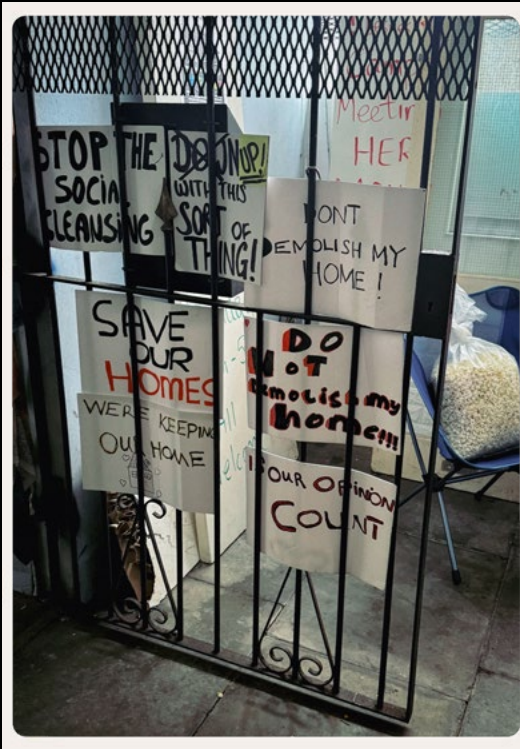 Meetin
HER
STOP THE
SOCIAL
CLEANSING
DOWN UP!
WITH THIS
SORT OF
THING!
DONT
DEMOLISH MY
HOME!
SAVE
OUR
HOMES
DO
NOT
Demolish my
home!!!
WERE KEEPING
OUR HOME
OUR OPINION
COUNT